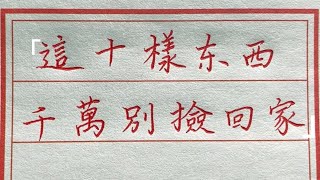 這十樣东西
千萬别撿回家